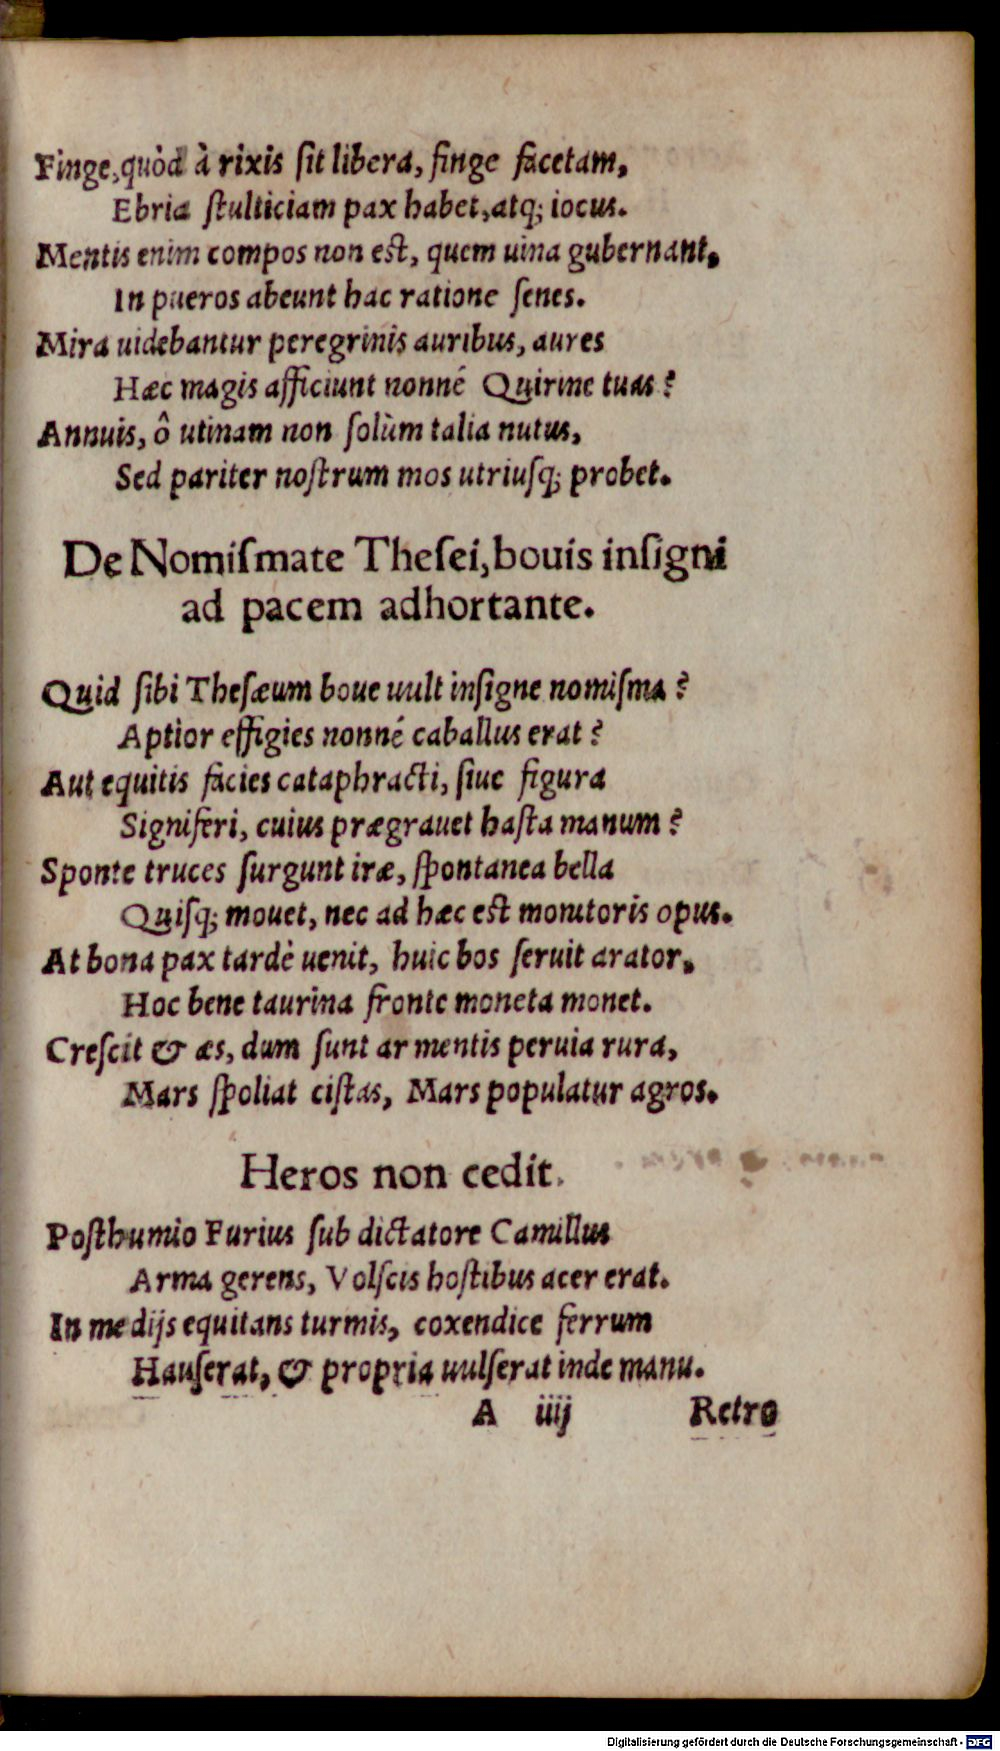 Finge, quòd à rixis ſit libera, finge facetam,
Ebria ſtulticiam pax habet, atq; iocus.
Mentis enim compos non eſt, quem uina gubernant,
In pueros abeunt hac ratione ſenes.
Mira uidebantur peregrinis auribus, aures
Hæc magis afficiunt nonné Quirine tuas?
Annuis, ô utinam non ſolùm talia nutus,
Sed pariter noſtrum mos utriuſq; probet.
De Nomiſmate Theſei, bouis inſigni
ad pacem adhortante.
Quid ſibi Theſæum boue uult inſigne nomiſma?
Aptior effigies nonné caballus erat?
Aut equitis facies cataphracti, ſiue figura
Signiferi, cuius prægrauet haſta manum?
Sponte truces ſurgunt iræ, ſpontanea bella
Quiſq; mouet, nec ad hæc eſt monitoris opus.
At bona pax tardè uenit, huic bos ſeruit arator,
Hoc bene taurina fronte moneta monet.
Creſcit & æs, dum ſunt armentis peruia rura,
Mars ſpoliat ciſtas, Mars populatur agros.
Heros non cedit.
Poſthumio Furius ſub dictatore Camillus
Arma gerens, Volſcis hoſtibus acer erat.
In medijs equitans turmis, coxendice ferrum
Hauſerat, & propria uulſerat inde manu.
A iiij Retro
Digitalisierung gefördert durch die Deutsche Forschungsgemeinschaft - DFG